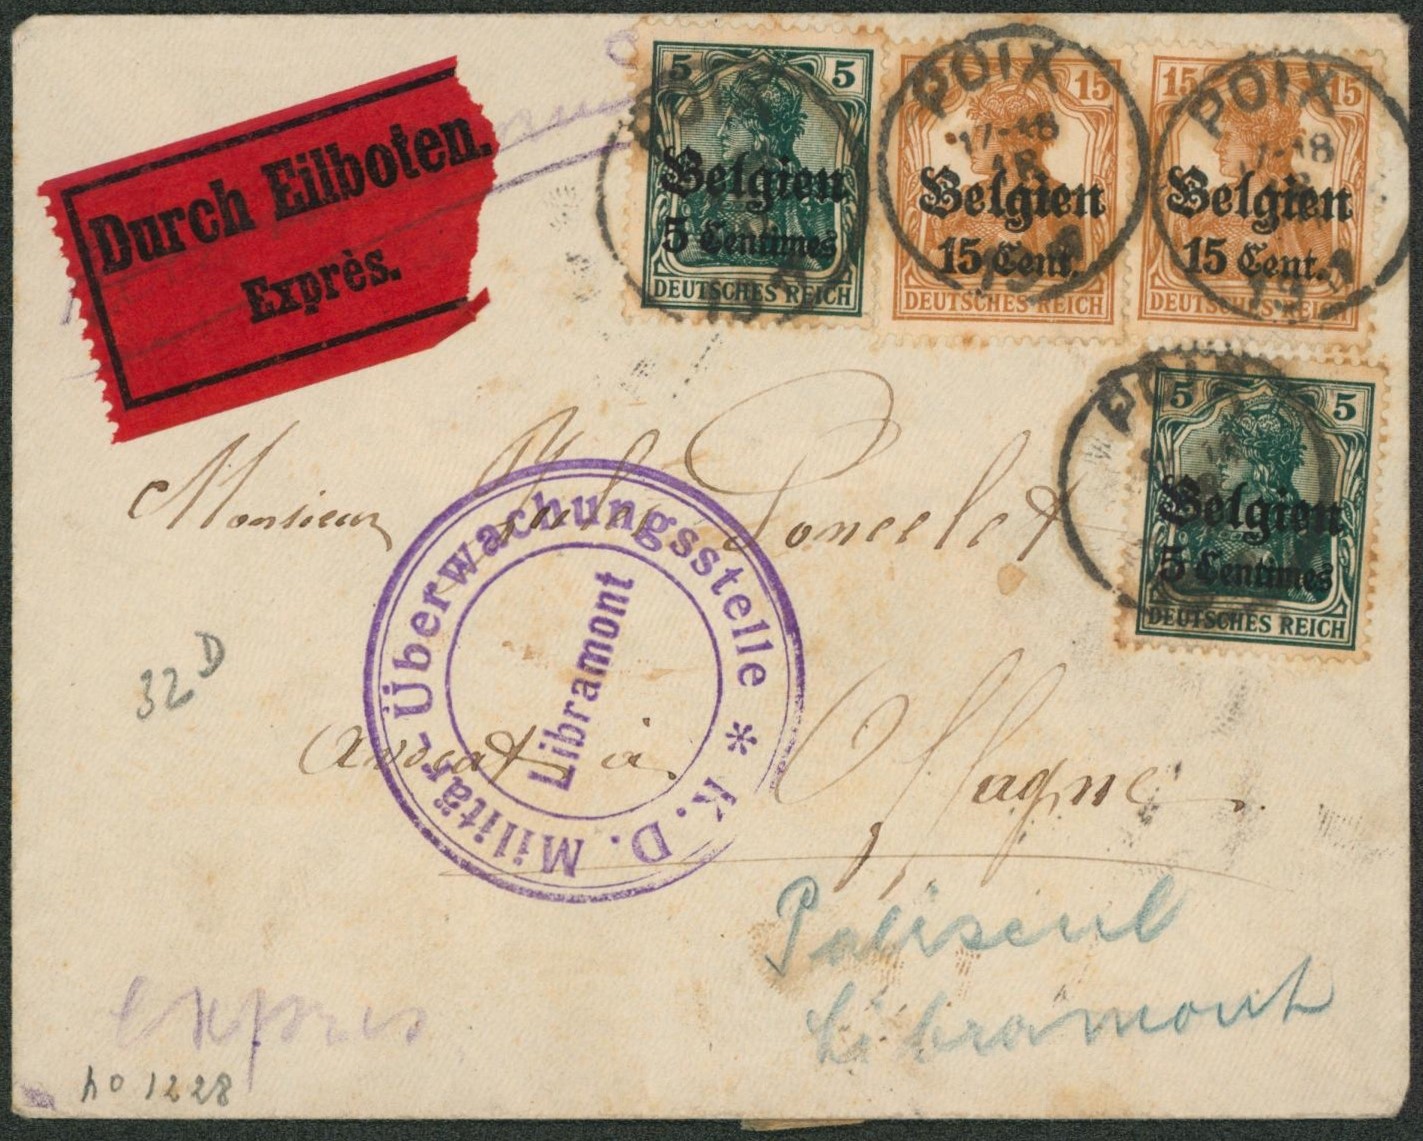 Durch Eilboten.
Exprès.
5 5
Belgien
5 Centimes
DEUTSCHES REICH
15
Belgien
15 Cent.
DEUTSCHES REICH
15 15
Belgien
15 Cent.
DEUTSCHES REICH
POIX
17-18
POIX
5 5
Belgien
5 Centimes
DEUTSCHES REICH
Monsieur Jules Poncelet
avocat à Offagne
K. D. Militär-Überwachungsstelle *
Libramont
32 D
Paliseul
Libramont
Expres
no 1228